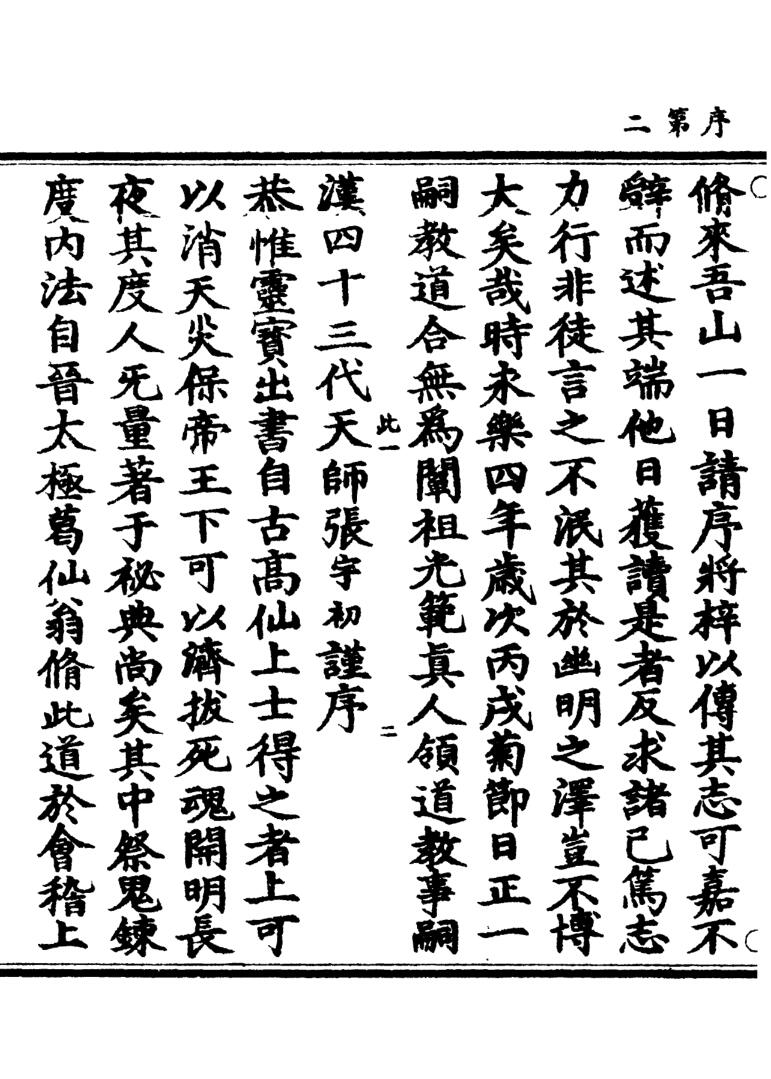 序第二
脩來吾山一日請序將梓以傳其志可嘉不
辭而述其端他日獲讀是者反求諸己篤志
力行非徒言之不泯其於幽明之澤豈不博
大矣哉時永樂四年歲次丙戌菊節日正一
嗣教道合無爲闡祖光範真人領道教事嗣
漢四十三代天師張宇初謹序
此一
二
恭惟靈寳出書自古高仙上士得之者上可
以消天灾保帝王下可以濟拔死魂開明長
夜其度人旡量著于祕典尚矣其中祭鬼鍊
度内法自晉太極葛仙翁脩此道於會稽上